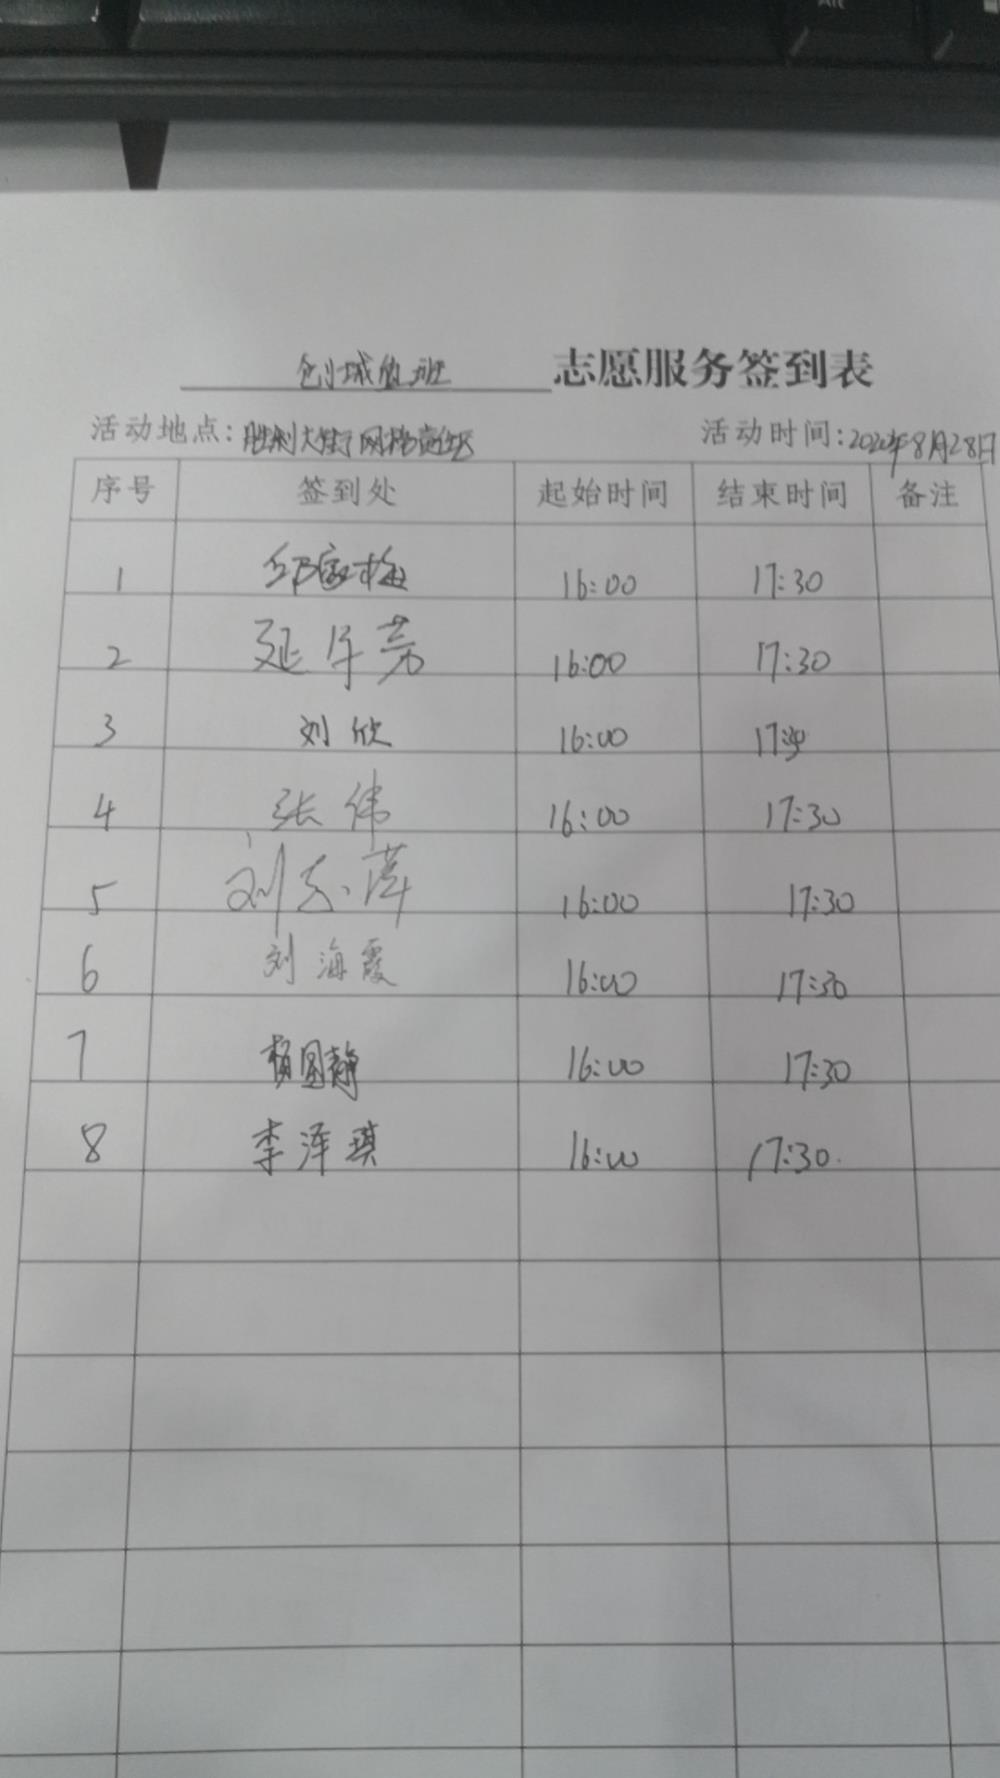 创城值班 志愿服务签到表
活动地点：胜利大街网格责任区 活动时间：2020年8月28日
序号 签到处 起始时间 结束时间 备注
1 邱家梅 16:00 17:30
2 延年芳 16:00 17:30
3 刘欣 16:00 17:30
4 张伟 16:00 17:30
5 刘志萍 16:00 17:30
6 刘海霞 16:00 17:30
7 杨圆静 16:00 17:30
8 李泽琪 16:00 17:30